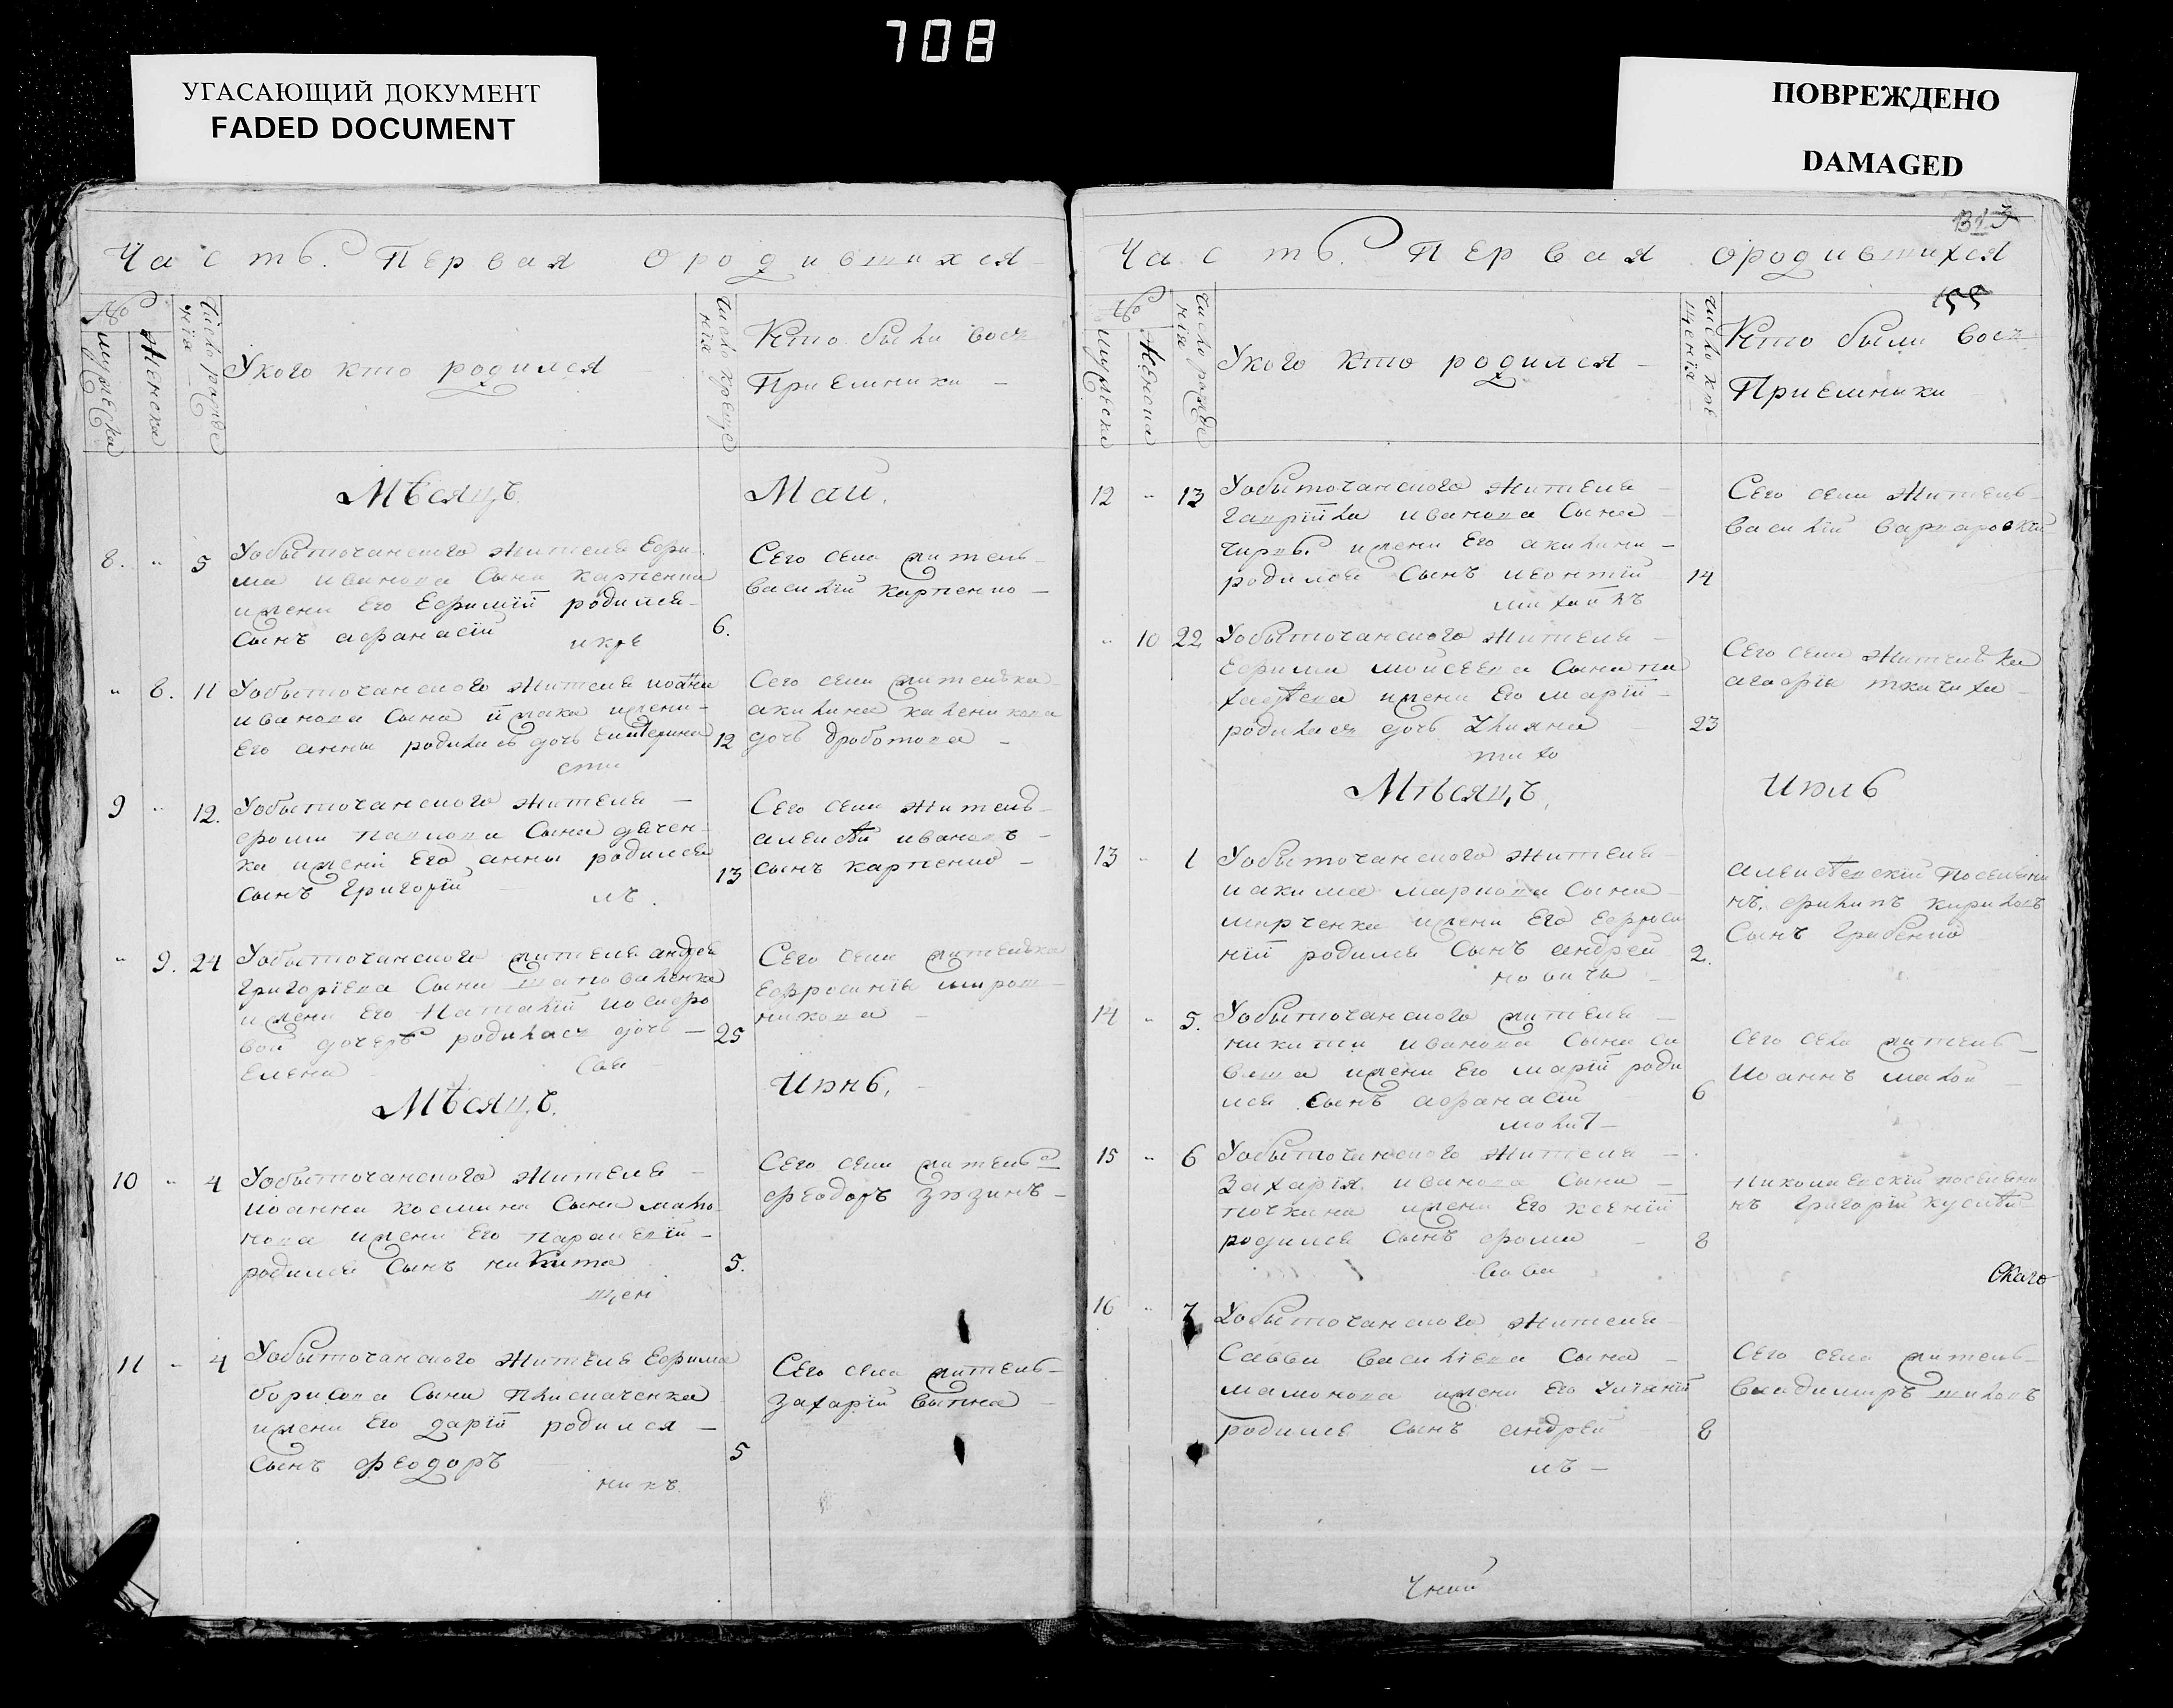 708
УГАСАЮЩИЙ ДОКУМЕНТ
FADED DOCUMENT
ПОВРЕЖДЕНО
DAMAGED
Часть Первая ородившихся
№
мужеска
Женска
число рожде
нїя
Укого кто родился
число креще
нїя
Кто были вос
Приемники
Мѣсяцъ
Маи.
8. " 5
Уобыточанского жителя Ефи
ма иванова Сына карпенка
имени Его Ефимїй родился
Сынъ афанасїй
6.
Сего села житель
василїй карпенко
" 8. 11
Уобыточанского жителя иоанна
иванова Сына
Его анны родилась дочь Екатерина
12
Сего села жителька
акилина каленикова
дочь дроботова
9 " 12.
Уобыточанского жителя
фомы павлова Сына дячен
ка имени Его анны родился
Сынъ Григорїй
13
Сего села житель
алексѣй ивановъ
сынъ карпенко
" 9. 24
Уобыточанского жителя андрея
Григорїева Сына шаповаленка
имени Его Наталїй иосифо
вой дочерѣ родилась дочь
Елена
25
Сего села жителька
Ефросинїя мирош
никова
Мѣсяцъ.
Июнь.
10 " 4
Уобыточанского жителя
Иоанна космина Сына мамо
нова имени Его параскевїй
родился Сынъ никита
5.
Сего села житель
феодоръ зюзинъ
11 " 4
Уобыточанского жителя Ефима
борисова Сына плисаченка
имени Его дарїй родился
Сынъ феодоръ
5
Сего села житель
захарїй
313
155
Часть Первая ородившихся
№
мужеска
Женска
число рожде
нїя
Укого кто родился
число кре
щенїя
Кто были вос
Приемники
12 " 13
Уобыточанского жителя
гаврїила иванова Сына
чирвы имени Его акилини
родился Сынъ леонтїй
14
Сего села житель
василїй варваровскїй
" 10 22
Уобыточанского жителя
Ефима мойсеева Сына
имени Его марїй
родилась дочь Улияна
23
Сего села жителька
агафїя ткачиха
Мѣсяцъ.
Июль
13 " 1
Уобыточанского жителя
иакима маркова Сына
марченка имени Его Ефроси
нїй родился Сынъ андрей
2.
алексѣевскїй поселяни
нъ. филипъ кириловъ
Сынъ Грибенко
14 " 5.
Уобыточанского жителя
никиты иванова Сына са
ваша имени Его марїй роди
лся Сынъ афанасїй
6
Сего села житель
Иоаннъ малой
15 " 6
Уобыточанского жителя
Захарїя иванова Сына
почкина имени Его ксенїй
родился Сынъ фома
8
николаевскїй поселяни
нъ Григорїй
16 " 7
Уобыточанского жителя
Саввы василїева Сына
мамонова имени Его Улїянїй
родился Сынъ андрей
8
Сего села житель
владимиръ шиловъ
Ского